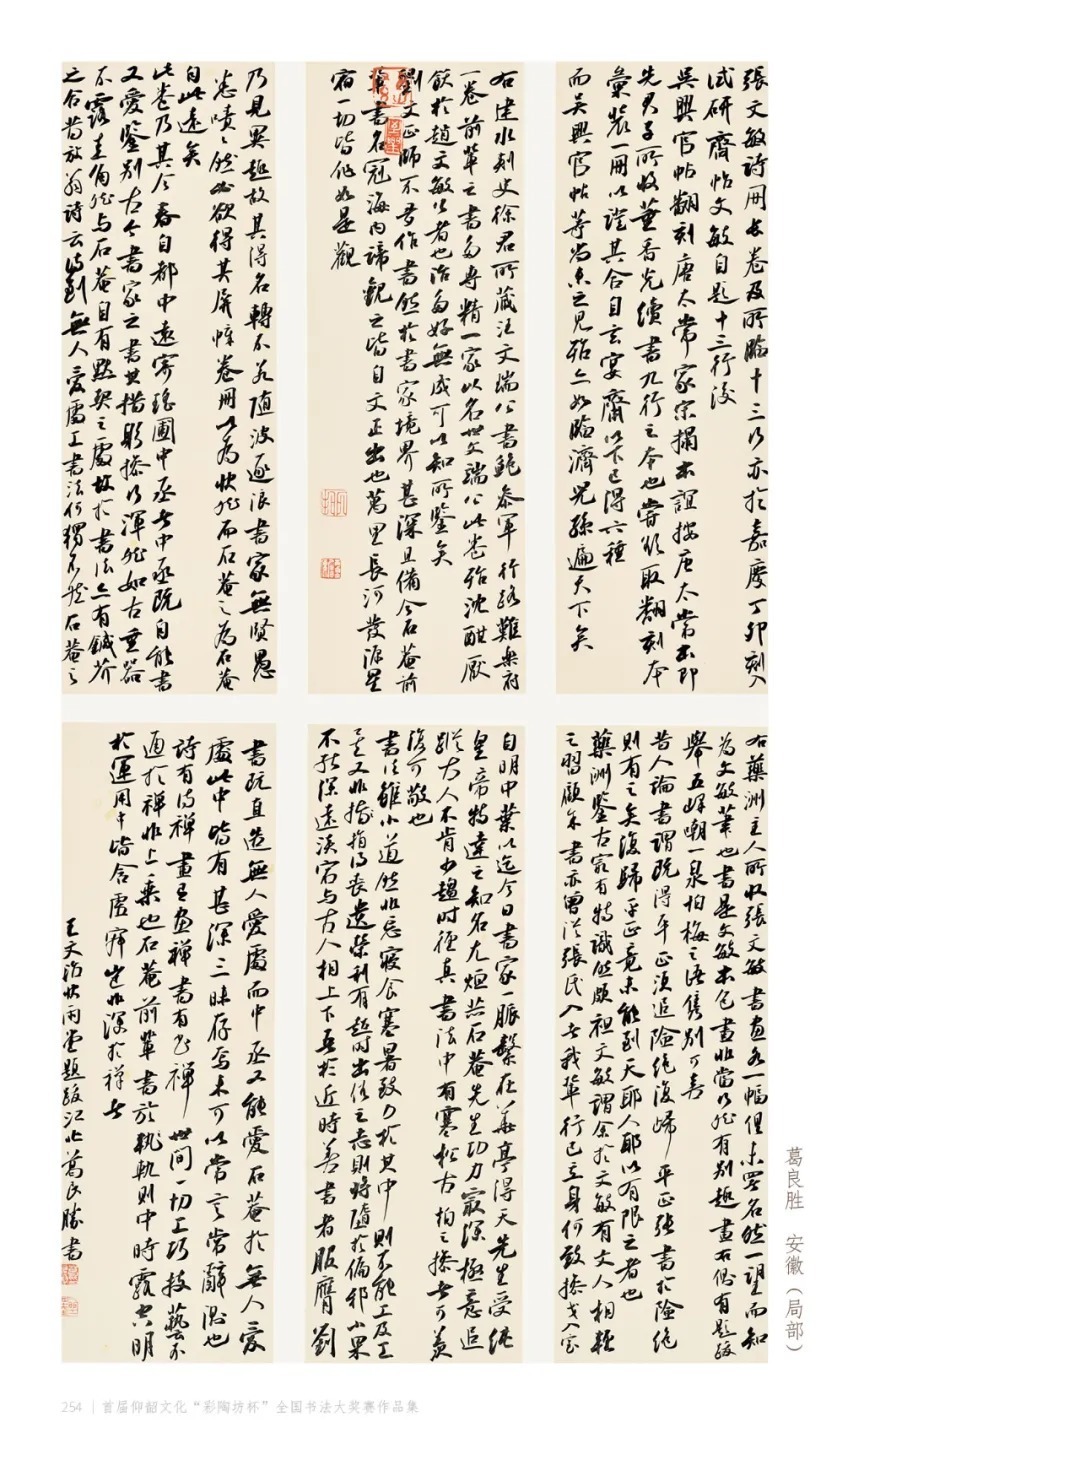 張文敏詩冊長卷及所臨十三行亦於嘉慶丁卯刻入
試研齋帖文敏自題十三行後
吳興官帖翻刻唐太常家宗搨本誼按唐太常本即
先君子所收董香光續書九行之本也嘗欲取翻刻本
彙裝一冊以證其合自言宴齋以下已得六種
而吳興官帖等尚未之見殆亦如臨濟兒孫遍天下矣
右建水刺史徐君所藏汪文端公書鮑參軍行路難樂府
一卷前輩之書多專精一家以名世文端公此卷殆沈酣厭
飫於趙文敏公者也治多好無成可以知所鑒矣
劉文正師不多作書然於書家境界甚深且備今石菴前
輩書名冠海內諦觀之皆自文正出也萬里長河發源星
宿一切皆作如是觀
乃見異趣故其得名轉不若隨波逐浪書家無賢愚
恚嘖嘖然必欲得其屏幛卷冊以為快然而石菴之為石菴
自此遠矣
此卷乃其今春自都中遠寄瑤圃中丞者中丞既自能書
又愛鑒別古今書家之書其措躬操行渾然如古重器
不露圭角然與石菴自有默契之處故於書法亦有鍼芥
之合昔放翁詩云詩到無人愛處工書法何獨不然石菴之
右藥洲主人所收張文敏書畫各一幅但未署名然一望而知
為文敏筆也書是文敏本色畫非當行然有別趣畫右側有題跋
舉五峰嘲一泉怕梅之語雋別可喜
昔人論書謂既得平正須追險絕復歸平正張書於險絕
則有之矣復歸平正竟未能到天耶人耶以有限之者也
藥洲鑒古家有特識然頗袒文敏謂余於文敏有文人相輕
之習顧年書亦曾從張氏入者我輩行己立身何敢操戈入室
自明中葉以迄今日書家一脈繫在華亭得天先生受純
皇帝特達之知名尤烜赫石菴先生功力最深極意追
蹤古人不肯少趨時徑真書法中有塞松古柏之操者可羨
復可敬也
書法雖小道然非忘寢食塞暑致力於其中則不能工及工
矣又非捐得喪遺榮利有超時出俗之志則將隨於偏邪小果
不能深遠淡宕與古人相上下吾於近時善書者服膺劉
書既直造無人愛處而中丞又能愛石菴於無人愛
處此中皆有甚深三昧存焉未可以常言常辭測也
詩有詩禪畫有畫禪書有書禪世間一切工巧技藝不
通於禪非上乘也石菴前輩書於執軌則中時露空明
於運用中皆含虛寂豈非深於禪者
王文治快雨堂題跋江北葛良勝書
葛良胜 安徽（局部）
254 | 首届仰韶文化“彩陶坊杯”全国书法大奖赛作品集